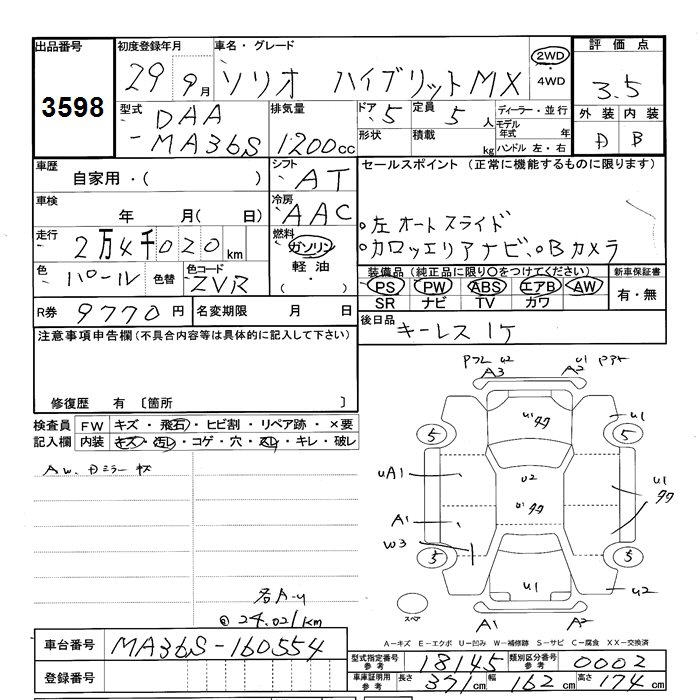 出品番号 初度登録年月 車名・グレード 評価点
3598 29 9月 ソリオ ハイブリットMX 2WD ・ 4WD 3.5
型式 DAA -MA36S 排気量 1200cc ドア 5 定員 5人 ディーラー・並行
形状 積載 kg モデル年式 年 ハンドル 左・右
外装 内装
D B
車歴 自家用・( ) シフト AT セールスポイント (正常に機能するものに限ります)
車検 年 月( 日) 冷房 AAC
・左オートスライド
走行 2万4千020km 燃料 ガソリン 軽油 ・( )
・カロッェリアナビ、・Bカメラ
色 パール 色替 色コード ZVR
装備品 (純正品に限り○をつけてください) 新車保証書
PS PW ABS エアB AW 有・無
SR ナビ TV カワ
R券 9770円 名変期限 月 日
後日品 キーレス1ケ
注意事項申告欄(不具合内容等は具体的に記入して下さい)
修復歴 有 〔箇所 〕
検査員記入欄 FW キズ・飛石・ヒビ割・リペア跡・×要
内装 キズ・汚レ・コゲ・穴・スレ・キレ・破レ
AW、Dミラーキズ
24.021km
A3 U2 U1 A2
U1
5 5
UA1 U2 U1
A1
W3
5 5
U1 U2
スペア A1 A2
A−キズ E−エクボ U−凹み W−補修跡 S−サビ C−腐食 XX−交換済
車台番号 MA36S-160554
登録番号
型式指定番号 参考 18145 類別区分番号 参考 0002
車庫証明用 参考 長さ 371cm 幅 162cm 高さ 174cm